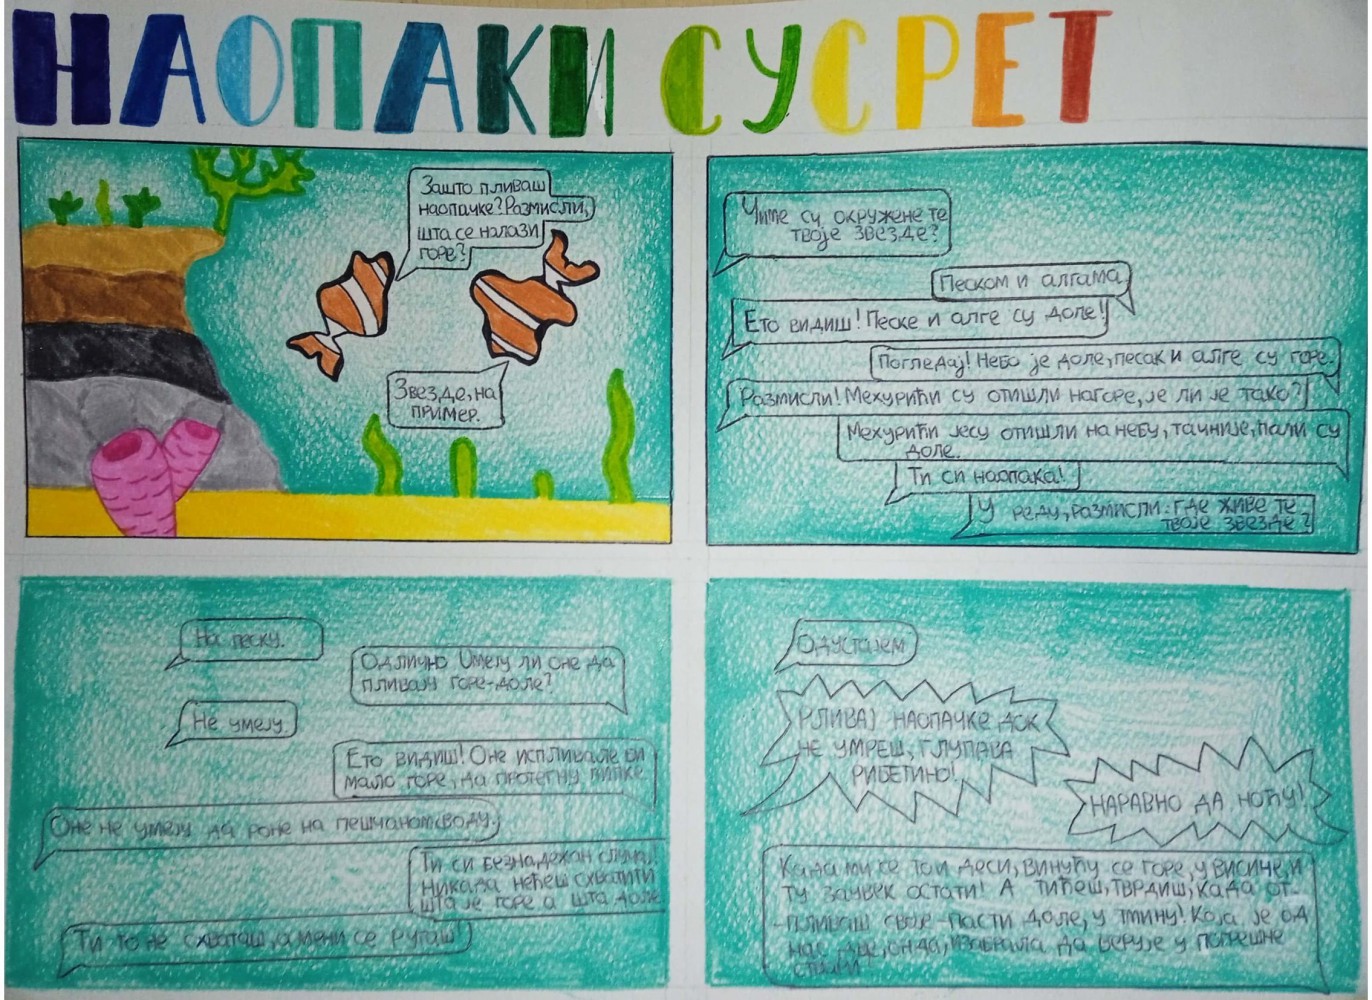 НАОПАКИ СУСРЕТ
Зашто пливаш
наопачке? Размисли,
шта се налази
горе?
Звезде, на
пример.
Чиме су окружене те
твоје звезде?
Песком и алгама
Ето видиш! Песке и алге су доле!
Погледај! Небо је доле, песак и алге су горе.
Размисли! Мехурићи су отишли нагоре, је ли је тако?
Мехурићи јесу отишли на небу, тачније, пали су
доле.
Ти си наопака!
У реду, размисли: где живе те
твоје звезде?
На песку.
Одлично Умеју ли оне да
пливају горе-доле?
Не умеју
Ето видиш! Оне испливале би
мало горе, да протегну пипке.
Оне не умеју да роне на пешчаном своду.
Ти си безнадежан случај!
Никада нећеш схватити
шта је горе а шта доле
Ти то не схваташ, а мени се ругаш!
Одустајем
ПЛИВАЈ НАОПАЧКЕ ДОК
НЕ УМРЕШ, ГЛУПАВА
РИБЕТИНО!
НАРАВНО ДА ХОЋУ!
Када ми се то и деси, винућу се горе, у висине, и
ту заувек остати! А ти ћеш, тврдиш, када от-
пливаш своје - пасти доле, у тмину! Која је од
нас две, онда, изабрала да верује у погрешне